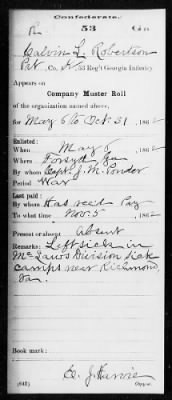 Confederate.
R 53 Ga.
Calvin L. Robertson
Pvt, Co. K, 53 Reg't Georgia Infantry
Appears on
Company Muster Roll
of the organization named above,
for May 6 to Oct. 31, 1862
Enlisted:
When May 6, 1862
Where Forsyth Ga
By whom Capt. J. M. Ponder
Period War
Last paid:
By whom Has recd Pay
To what time Nov. 5, 1862
Present or absent Absent
Remarks: Left sick in
McLaws Division sick
camps near Richmond,
Va.
Book mark:
(642) Copyist.